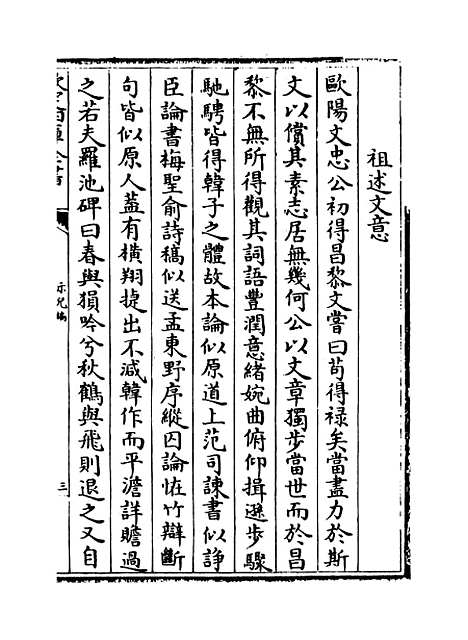 祖述文意
歐陽文忠公初得昌黎文嘗曰苟得祿矣當盡力於斯
文以償其素志居無幾何公以文章獨步當世而於昌
黎不無所得觀其詞語豐潤意緒婉曲俯仰揖遜步驟
馳騁皆得韓子之體故本論似原道上范司諫書似諍
臣論書梅聖俞詩稿似送孟東野序縱囚論怪竹辯斷
句皆似原人蓋有橫翔捷出不減韓作而平澹詳贍過
之若夫羅池碑曰春與猿吟兮秋鶴與飛則退之又自
示兒編
三